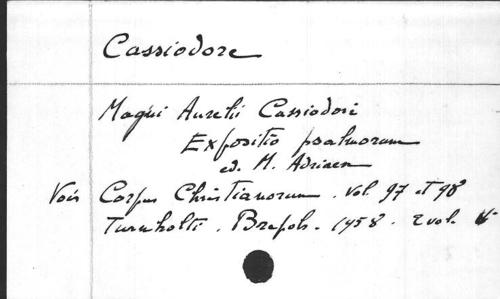 Cassiodore
Magni Aurelii Cassiodori
Expositio psalmorum
ed. M. Adriaen
Voir Corpus Christianorum. vol. 97 et 98
Turnholti. Brepols. 1958. 2 vol.